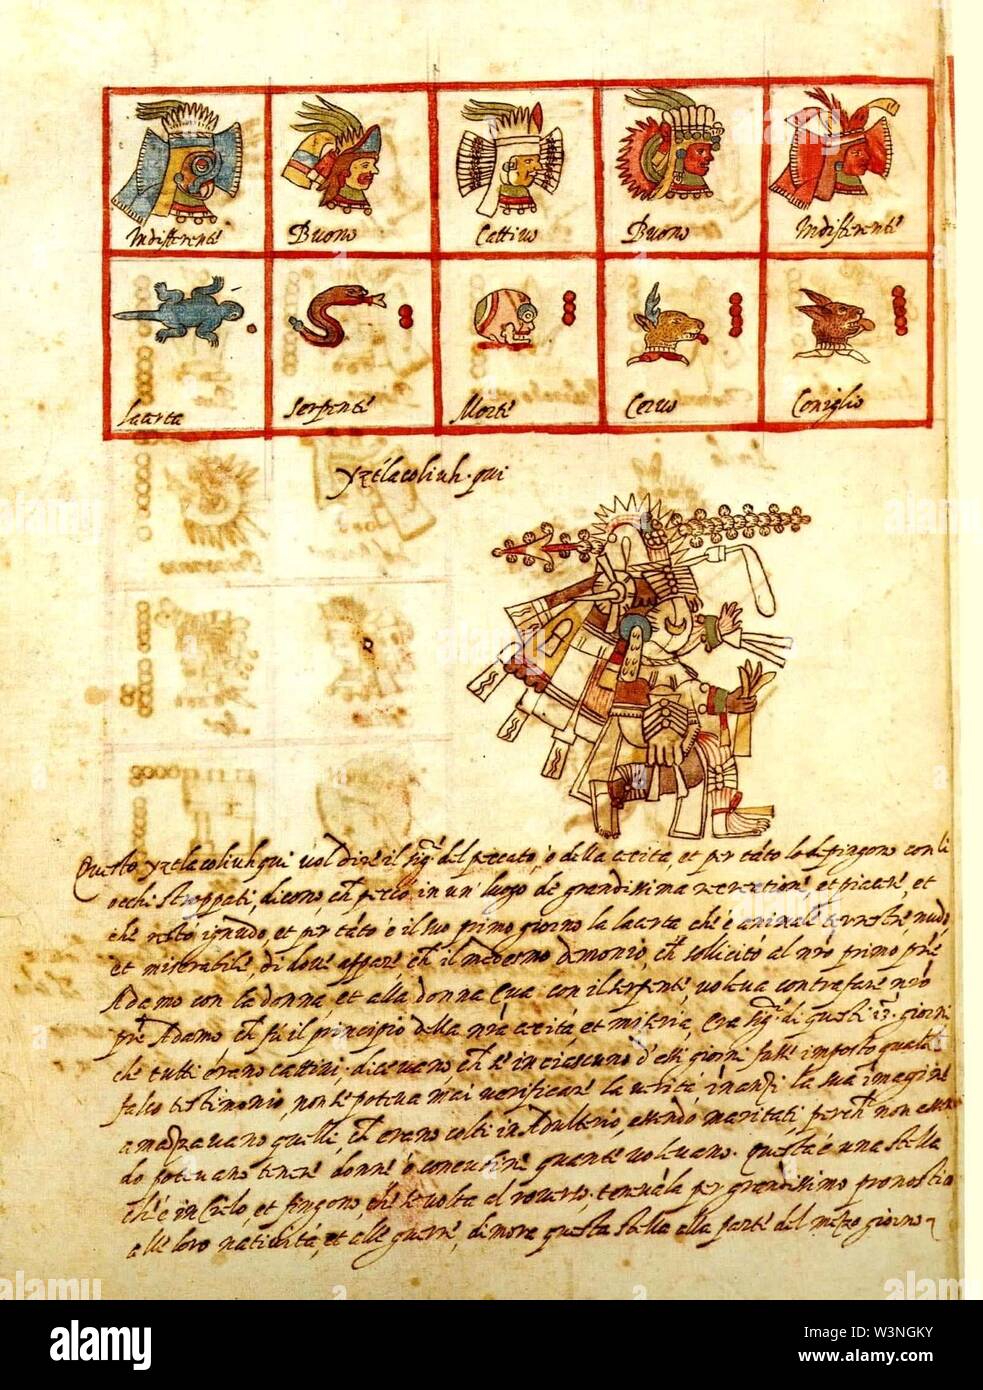 Indifferente Buono Cattivo Buono Indifferente
lacerta serpente Morte Cervo Coniglio
yztlacoliuh.qui
Questo yztlacoliuhqui vol dire il sigr del peccato, o della cecità, et per tāto lo depingono con li
occhi stroppati, dicono, ch̄ peccò in un' luogo de grandissima recreatione, et piacere, et
che restò ignudo, et per tāto è il suo primo giorno la lacerta che è animale terrestre, nudo,
et miserabile, di dove appare, ch̄ il medesmo demonio, ch̄ sollicitò al nrō primo prē
Adamo con la donna, et alla donna Eva con il serpente, voleva contrafare nrō
prē Adamo, ch̄ fù il principio della nrā cecità, et miseria, Era sigr di questi 13. giorni
che tutti erano cattivi. dicevano ch̄ se in ciascuno d'essi giorni fosse imposto qualche
falso testimonio, non se poteva mai verificare la verità, inanzi la sua imagine
amazzavano quelli, ch̄ erano colti in Adulterio, essendo maritati, perch̄ non essen
do potevano tenere donne ò concubine quante volevano. Questa è una stella
che è in Cielo, et fingono, che se volta al roverso, tenuala per grandissimo pronostico
alle loro natività, et alle guerre, dimora questa stella alla parte del mezo giorno
alamy
W3NGKY
www.alamy.com